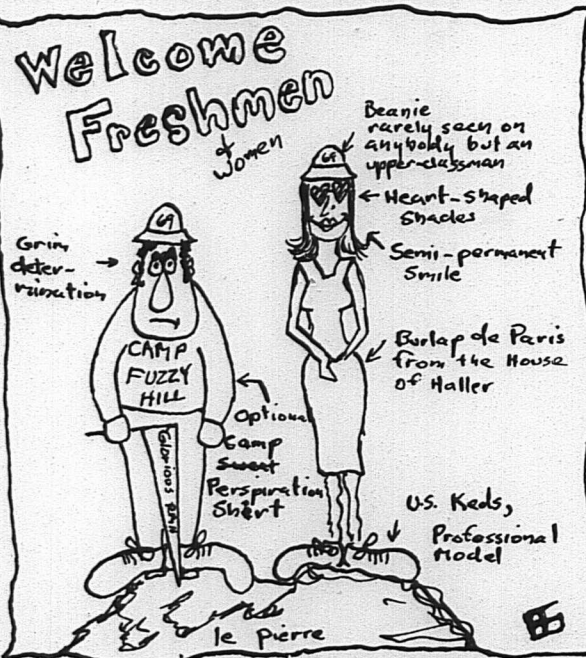 Welcome
Freshmen
& women
Beanie
rarely seen on
anybody but an
upper-classman
69
Heart-shaped
Shades
Semi-permanent
Smile
69
Grim
deter-
mination
CAMP
FUZZY
HILL
Burlap de Paris
from the House
of Haller
Optional
Camp
Sweat
Perspiration
Shirt
Glorious
U.S. Keds,
Professional
Model
le pierre